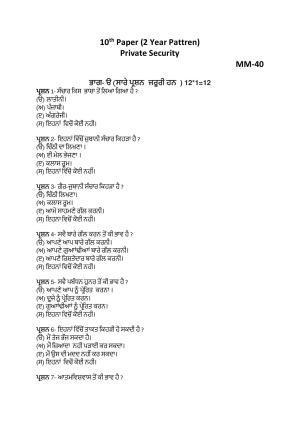 10th Paper (2 Year Pattren)
Private Security
MM-40
ਭਾਗ- ੳ (ਸਾਰੇ ਪ੍ਰਸ਼ਨ ਜਰੂਰੀ ਹਨ ) 12*1=12
ਪ੍ਰਸ਼ਨ 1- ਸੰਚਾਰ ਕਿਸ ਭਾਸ਼ਾ ਤੋਂ ਲਿਆ ਗਿਆ ਹੈ ?
(ੳ) ਲਾਤੀਨੀ।
(ਅ) ਪੰਜਾਬੀ।
(ੲ) ਅੰਗਰੇਜ਼ੀ।
(ਸ) ਇਹਨਾਂ ਵਿਚੋਂ ਕੋਈ ਨਹੀਂ।
ਪ੍ਰਸ਼ਨ 2- ਇਹਨਾਂ ਵਿੱਚੋਂ ਜ਼ੁਬਾਨੀ ਸੰਚਾਰ ਕਿਹੜਾ ਹੈ ?
(ੳ) ਚਿੱਠੀ ਦਾ ਲਿਖਣਾ ।
(ਅ) ਈ ਮੇਲ ਭੇਜਣਾ ।
(ੲ) ਕਲਾਸ ਰੂਮ।
(ਸ) ਇਹਨਾਂ ਵਿੱਚੋਂ ਕੋਈ ਨਹੀਂ।
ਪ੍ਰਸ਼ਨ 3- ਗੈਰ-ਜ਼ੁਬਾਨੀ ਸੰਚਾਰ ਕਿਹੜਾ ਹੈ ?
(ੳ) ਚਿੱਠੀ ਲਿਖਣਾ।
(ਅ) ਕਲਾਸ ਰੂਮ।
(ੲ) ਆਮੋ ਸਾਹਮਣੇ ਗੱਲ ਕਰਨੀ।
(ਸ) ਇਹਨਾਂ ਵਿਚੋਂ ਕੋਈ ਨਹੀਂ।
ਪ੍ਰਸ਼ਨ 4- ਸਵੈ ਬਾਰੇ ਗੱਲ ਕਰਨ ਤੋਂ ਕੀ ਭਾਵ ਹੈ ?
(ੳ) ਆਪਣੇ ਆਪ ਬਾਰੇ ਗੱਲ ਕਰਨੀ।
(ਅ) ਆਪਣੇ ਗੁਆਂਢੀਆਂ ਬਾਰੇ ਗੱਲ ਕਰਨੀ।
(ੲ) ਆਪਣੇ ਰਿਸ਼ਤੇਦਾਰ ਬਾਰੇ ਗੱਲ ਕਰਨੀ।
(ਸ) ਇਹਨਾਂ ਵਿਚੋਂ ਕੋਈ ਨਹੀਂ।
ਪ੍ਰਸ਼ਨ 5- ਸਵੈ ਪ੍ਰਬੰਧਨ ਹੁਨਰ ਤੋਂ ਕੀ ਭਾਵ ਹੈ ?
(ੳ) ਆਪਣੇ ਆਪ ਨੂੰ ਪ੍ਰੇਰਿਤ ਕਰਨਾ ।
(ਅ) ਦੂਜੇ ਨੂੰ ਪ੍ਰੇਰਿਤ ਕਰਨਾ।
(ੲ) ਗੁਆਂਢੀਆਂ ਨੂੰ ਪ੍ਰੇਰਿਤ ਕਰਨਾ।
(ਸ) ਇਹਨਾਂ ਵਿਚੋਂ ਕੋਈ ਨਹੀਂ।
ਪ੍ਰਸ਼ਨ 6- ਇਹਨਾਂ ਵਿੱਚੋਂ ਤਾਕਤ ਕਿਹੜੀ ਹੋ ਸਕਦੀ ਹੈ ?
(ੳ) ਮੈਂ ਤੇਜ਼ ਭੱਜ ਸਕਦਾ ਹੈ।
(ਅ) ਮੈਂ ਜ਼ਿਆਦਾ ਨਹੀਂ ਪੜਾਈ ਕਰ ਸਕਦਾ।
(ੲ) ਮੈਂ ਉਸ ਦੀ ਮਦਦ ਨਹੀਂ ਕਰ ਸਕਦਾ।
(ਸ) ਇਹਨਾਂ ਵਿਚੋਂ ਕੋਈ ਨਹੀਂ।
ਪ੍ਰਸ਼ਨ 7- ਆਤਮਵਿਸ਼ਵਾਸ ਤੋਂ ਕੀ ਭਾਵ ਹੈ ?